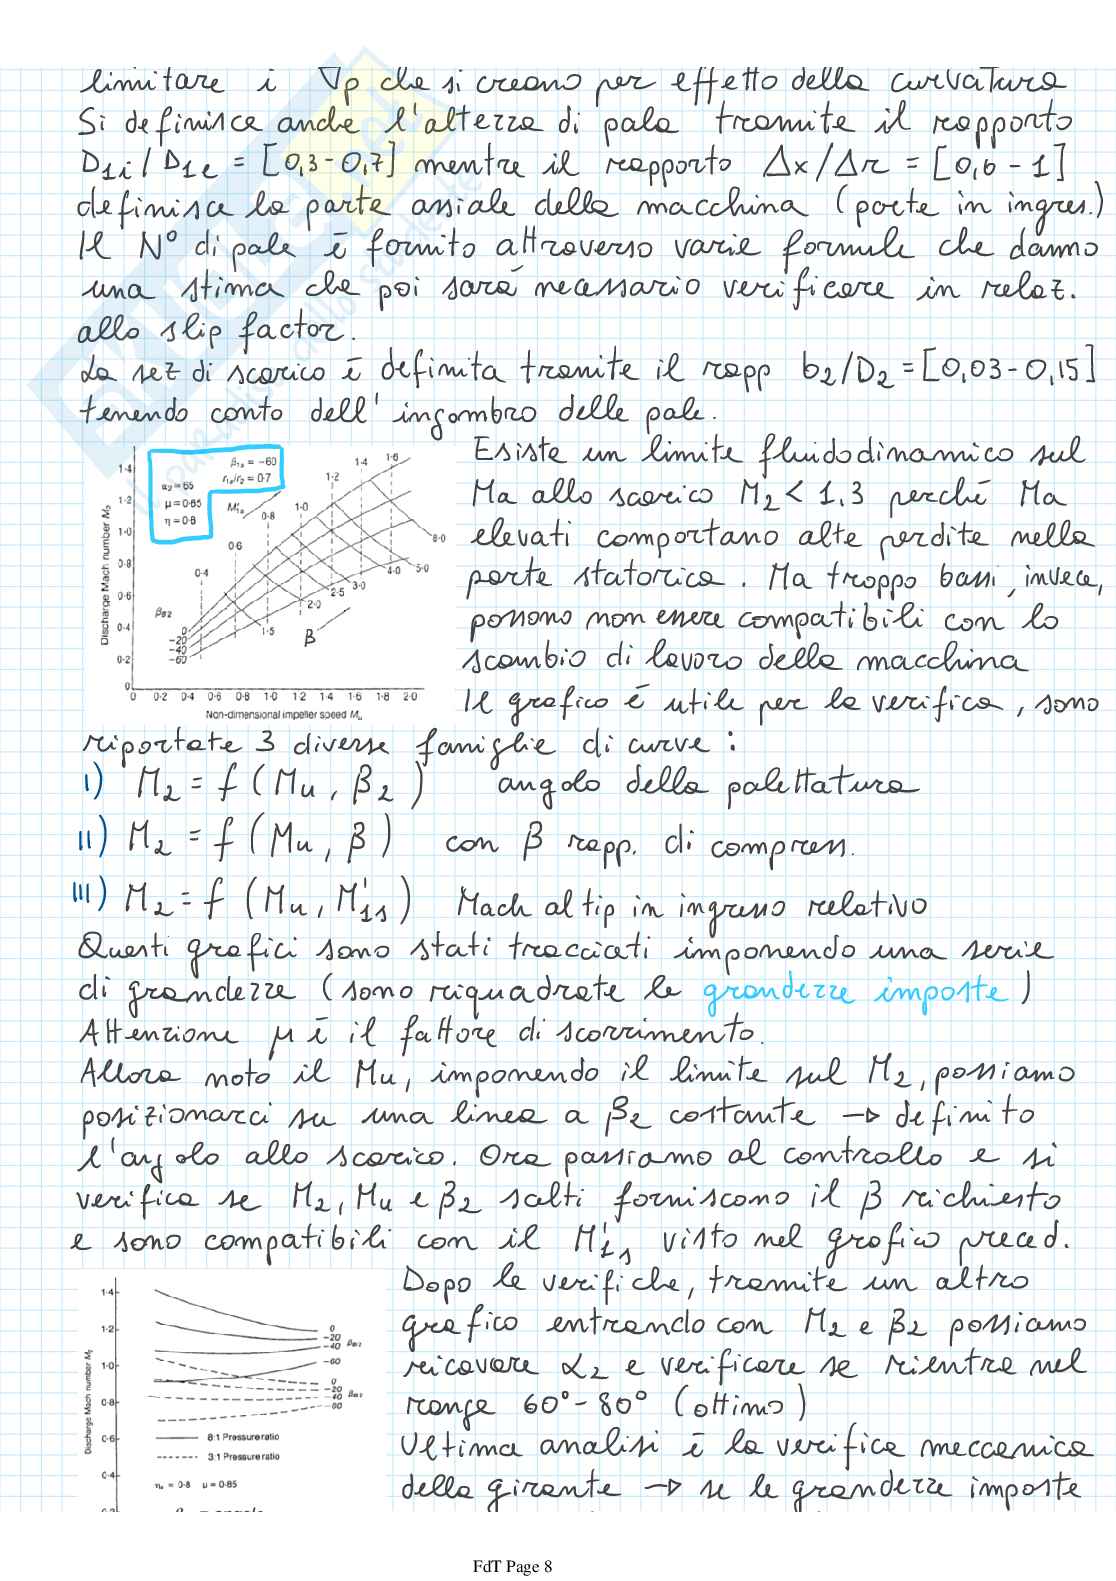 limitare i ∇p che si creano per effetto della curvatura
Si definisce anche l'altezza di pala tramite il rapporto
D1i / D1e = [0,3 - 0,7] mentre il rapporto Δx/Δr = [0,6 - 1]
definisce la parte assiale della macchina (parte in ingres.)
Il N° di pale è fornito attraverso varie formule che danno
una stima che poi sarà necessario verificare in relaz.
allo slip factor.
La sez di scarico è definita tramite il rapp b2/D2 = [0,03 - 0,15]
tenendo conto dell'ingombro delle pale.
Esiste un limite fluidodinamico sul
Ma allo scarico M2 < 1.3 perché Ma
elevati comportano alte perdite nella
parte statorica. Ma troppo bassi, invece,
possono non essere compatibili con lo
scambio di lavoro della macchina
Il grafico è utile per la verifica, sono
Discharge Mach number M2
1·4
1·2
1·0
0·8
0·6
0·4
0·2
0
β1s = -60
α2 = 65 r1s/r2 = 0·7
μ = 0·85
η = 0·8
M'1s
0·4 0·6 0·8 1·0 1·2 1·4 1·6
βB2
0
-20
-40
-60
1·5 2·0 2·5 3·0 4·0 5·0 8·0
β
0 0·2 0·4 0·6 0·8 1·0 1·2 1·4 1·6 1·8 2·0
Non-dimensional impeller speed Mu
riportate 3 diverse famiglie di curve :
I) M2 = f (Mu, β2) angolo della palettatura
II) M2 = f (Mu, β) con β rapp. di compress.
III) M2 = f (Mu, M'11) Mach al tip in ingresso relativo
Questi grafici sono stati tracciati imponendo una serie
di grandezze (sono riquadrate le grandezze imposte)
Attenzione μ è il fattore di scorrimento.
Allora noto il Mu, imponendo il limite sul M2, possiamo
posizionarci su una linea a β2 costante → definito
l'angolo allo scarico. Ora passiamo al controllo e si
verifica se M2, Mu e β2 scelti forniscono il β richiesto
e sono compatibili con il M'1s visto nel grafico preced.
Dopo le verifiche, tramite un altro
grafico entrando con M2 e β2 possiamo
ricavare α2 e verificare se rientra nel
range 60° - 80° (ottimo)
Ultima analisi è la verifica meccanica
della girante → se le grandezze imposte
Discharge Mach number M2
1·4
1·2
1·0
0·8
0·6
0·4
0
-20
-40 βB2
-60
0
-20
-40 βB2
-60
8:1 Pressure ratio
3:1 Pressure ratio
= 0·8 μ = 0·85
FdT Page 8